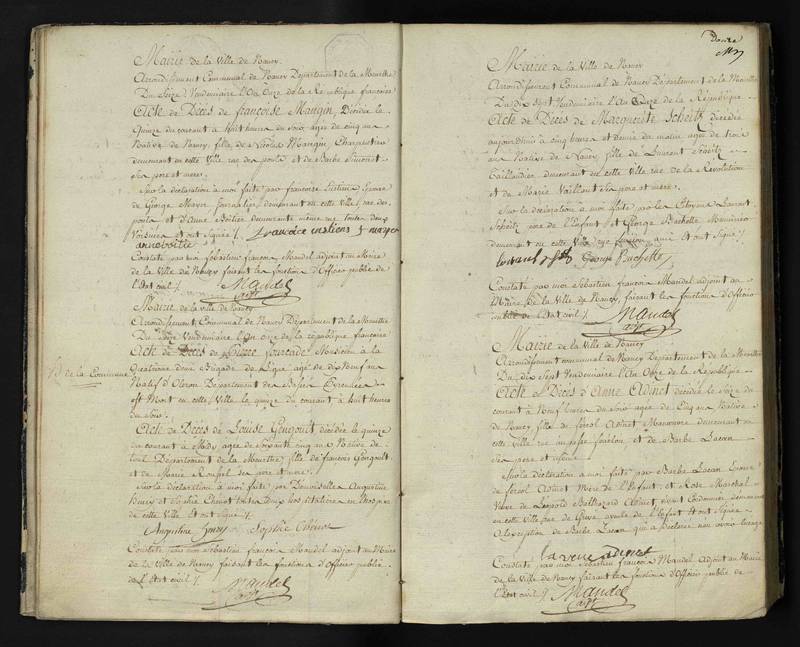 Mairie de la Ville de Nancy.
Arrondissement Communal de Nancy Département de la Meurthe
Du Seize Vendemiaire l'An Onze de la République française
Acte de Décès de françoise Mangin, Décédée le
Quinze du courant à huit heures du soir, agée de cinq ans
Native de Nancy, fille de Nicolas Mangin, Charpentier
demeurant en cette Ville rue des ponts et de Barbe
Ses pere et mere.
Sur la déclaration à moi faite par françoise Epouse
de George Mayer Journalier, demeurant en cette Ville, rue des
ponts et d'Anne Boitier demeurante même rue toutes deux
Voisines et ont signé /.
anne boitie
Constaté par moi Sébastien françois Mandel adjoint au Maire
de la Ville de Nancy faisant les fonctions d'Officier public de
l'Etat civil /. Mandel
adjt
Mairie de la Ville de Nancy
Arrondissement Communal de Nancy Département de la Meurthe
Du Seize Vendemiaire l'An Onze de la république francaise
Acte de Décès de Pierre fourcade Musicien à la
demi Brigade de Ligne agé de dix Neuf ans
Natif d'Oloron Département des Basses Pyrennées
est Mort en cette Ville le quinze du courant à huit heures
du Soir.
de la Commune
Acte de Décès de Louise Gengoult décédée le quinze
du courant à Midy agée de Soixante cinq ans Native de
toul Département de la Meurthe, fille de francois Gengoult
et de Marie ses pere et mere.
Sur la déclaration à moi faite par Demoiselles Augustine
Henry et Sophie Chenot toutes deux hospitalieres en l'hospice
de cette Ville et ont signé /.
Augustine henry Sophie Chenot
Constaté par moi Sébastien francois Mandel adjoint au Maire
de la Ville de Nancy faisant les fonctions d'Officier public
de l'Etat civil /. Mandel
adjt
Douze
Mairie de la Ville de Nancy
Arrondissement Communal de Nancy Département de la Meurthe
Du dix sept Vendemiaire l'An Onze de la République
Acte de Décès de Marguerite Scheitz décédée
aujourdhui à cinq heures et demie du matin agée de trois
ans Native de Nancy, fille de Laurent Scheitz
Taillandier demeurant en cette Ville rue de la Révolution
et de Marie Vaillant ses pere et mere.
Sur la déclaration à moi faite par le Citoyen Laurent
Scheitz pere de l'Enfant et George Bachette Menuisier
demeurant en cette Ville rue qui ont signé /.
George Bachette
Constaté par moi Sébastien francois Mandel adjoint au
Maire de la Ville de Nancy, faisant les fonctions d'Officier
public de l'Etat civil /. Mandel
adjt
Mairie de la Ville de Nancy
Arrondissement communal de Nancy Département de la Meurthe
Du dix Sept Vendemiaire l'An Onze de la République
Acte de Décès d'Anne Adinet décédée le Seize du
courant à Neuf heures du soir agée de Cinq ans Native
de Nancy fille de Adinet Manoeuvre demeurant en
cette Ville et de Barbe Lacan
ses pere et mere
Sur la déclaration à moi faite par Barbe Lacan Epouse
de Adinet Mere de l'Enfant et Rose Marchal
Veuve de Léopold Balthazard Adinet, Cordonnier demeurante
en cette Ville rue de Greve, ayeule de l'Enfant et ont signé
à l'exception de Barbe Lacan qui a déclaré n'en avoir l'usage
la veuve adinet
Constaté par moi Sébastien francois Mandel Adjoint au Maire
de la Ville de Nancy faisant les fonctions d'Officier public de
l'Etat civil /. Mandel
adjt